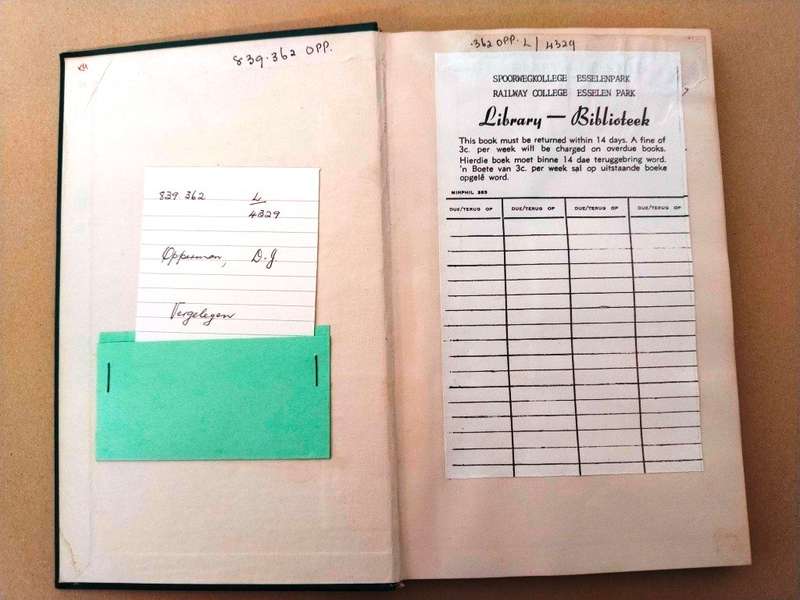 839.362 OPP.
839 362 L
4329
Opperman, D.J
Vergelegen
.362 OPP. L / 4329
SPOORWEGKOLLEGE ESSELENPARK
RAILWAY COLLEGE ESSELEN PARK
Library — Biblioteek
This book must be returned within 14 days. A fine of
3c. per week will be charged on overdue books.
Hierdie boek moet binne 14 dae teruggebring word.
'n Boete van 3c. per week sal op uitstaande boeke
opgelê word.
DUE/TERUG OP DUE/TERUG OP DUE/TERUG OP DUE/TERUG OP